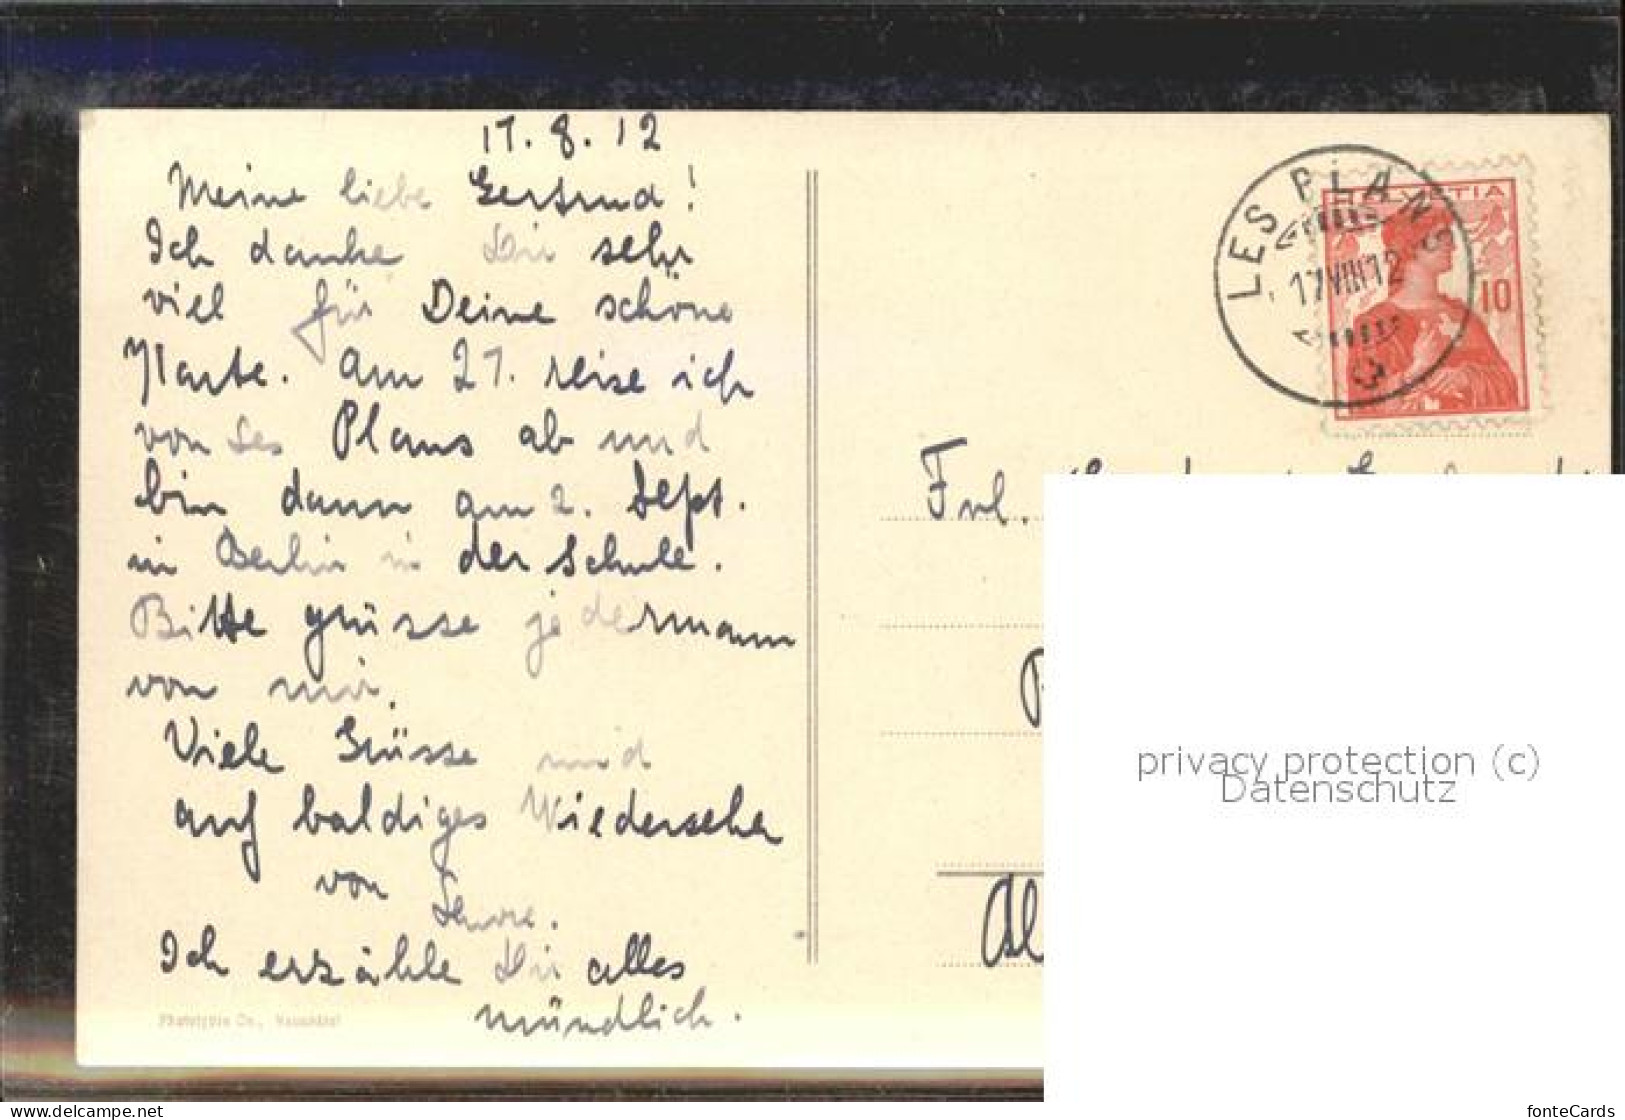 17.8.12
Meine liebe Gertrud!
Ich danke Dir sehr
viel für Deine schöne
Karte. Am 21. reise ich
von Les Plans ab und
bin dann am 2. Sept.
in Berlin in der Schule.
Bitte grüsse jedermann
von mir.
Viele Grüsse und
auf baldiges Wiedersehen
von
Ich erzähle Dir alles
mündlich.
Phototypie Co., Neuchâtel
LES PLANS
17 VIII 12
HELVETIA
10
Frl.
privacy protection (c)
Datenschutz
www.delcampe.net
fonteCards